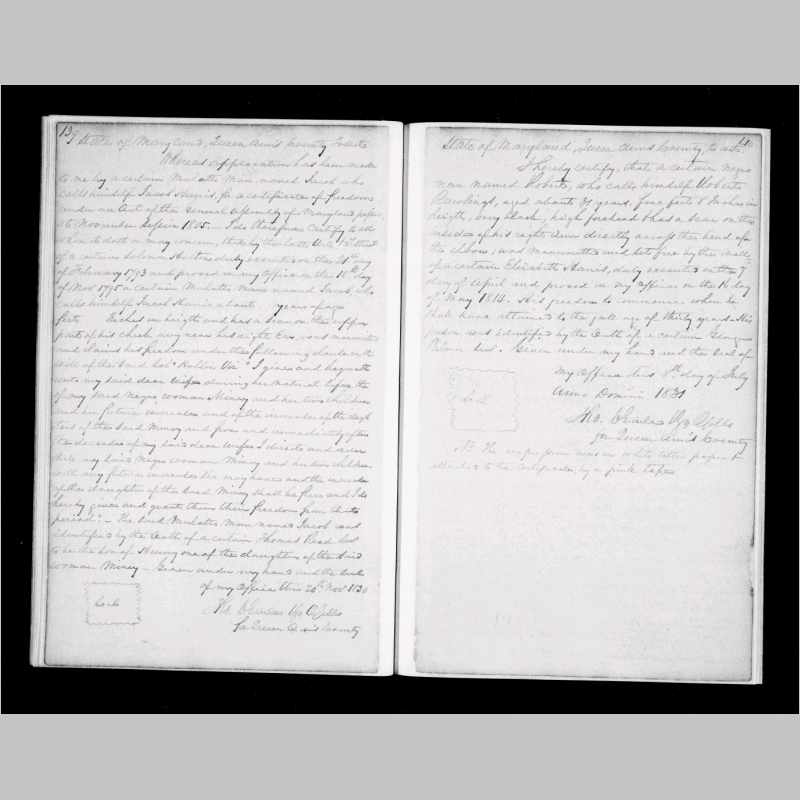 139
State of Maryland, Queen Ann's County to wit
Whereas application has been made
to me by a certain Mulatto Man named Jacob who
calls himself Jacob Harris, for a certificate of freedom
under an Act of the General Assembly of Maryland passed
at November Session 1805 — I do therefore Certify to all
whom it doth or may concern, that by the last Will & Test
of a certain duly executed on the 21st day
of February 1793 and proved in my Office on the 18th day
of Nov 1795 a certain Mulatto Man named Jacob, who
calls himself Jacob Harris about years of age
feet Inches in heigth and has a scar on the upper
part of his cheek very near his right Ear, was manumitted
and claims his freedom under the following clause in the
will of the said "I give and bequeath
unto my said dear Wife during her natural life the
of my said Negro woman Mincy and her two children
and her future increase and of the increase of the daugh
ters of the said Mincy and from and immediately after
the decease of my said dear wife I direct and order
that my said Negro woman Mincy and her two children
with any future increase she may have and the increase
of the daughters of the said Mincy shall be free and I do
hereby give and grant them their freedom from that
period" — The said Mulatto Man named Jacob was
identified by the Oath of a certain Thomas Reed
to be the son of one of the daughters of the said
woman Mincy — Given under my hand and the seal
of my Office this 20th Nov 1830
Seal
Tho. C Earle Reg Wills
for Queen Ann's County
140
State of Maryland, Queen Ann's County, to wit
I hereby certify, that a certain Negro
man named Roberts, who calls himself Roberts
Rawleigh, aged about years, four feet Inches in
heigth, very black, high forehead & has a scar on the
inside of his right Arm directly across the bend of
the elbow, was manumitted and set free by the will
of a certain Elizabeth Harris, duly executed on the 7
day of April and proved in my office on the 16 day
of May 1814. His freedom to commence when he
shall have attained to the full age of thirty years — His
person was identified by the Oath of a certain George
Given under my hand and the seal of
my Office this 8th day of July
Anno Domini 1831
Seal
Tho. C Earle Reg Wills
for Queen Ann's County
NB The was on white letter paper &
attached to the certificate by a pink tape